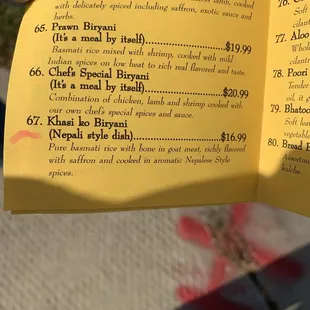 lamb, cooked
with delicately spiced including saffron, exotic sauce and
herbs.
65. Prawn Biryani
(It's a meal by itself)..............................$19.99
Basmati rice mixed with shrimp, cooked with mild
Indian spices on low heat to rich real flavored and taste.
66. Chef's Special Biryani
(It's a meal by itself)..............................$20.99
Combination of chicken, lamb and shrimp cooked with
our own chef's special spices and sauce.
67. Khasi ko Biryani
(Nepali style dish)..............................$16.99
Pure basmati rice with bone in goat meat, richly flavored
with saffron and cooked in aromatic Nepalese Style
spices.
76.
Soft
cilant
77. Aloo
Whole
cilantr
78. Poori
Tender
oil, it g
79. Bhatoo
Soft leav
vegetable
80. Bread B
Assortme
kulcha.